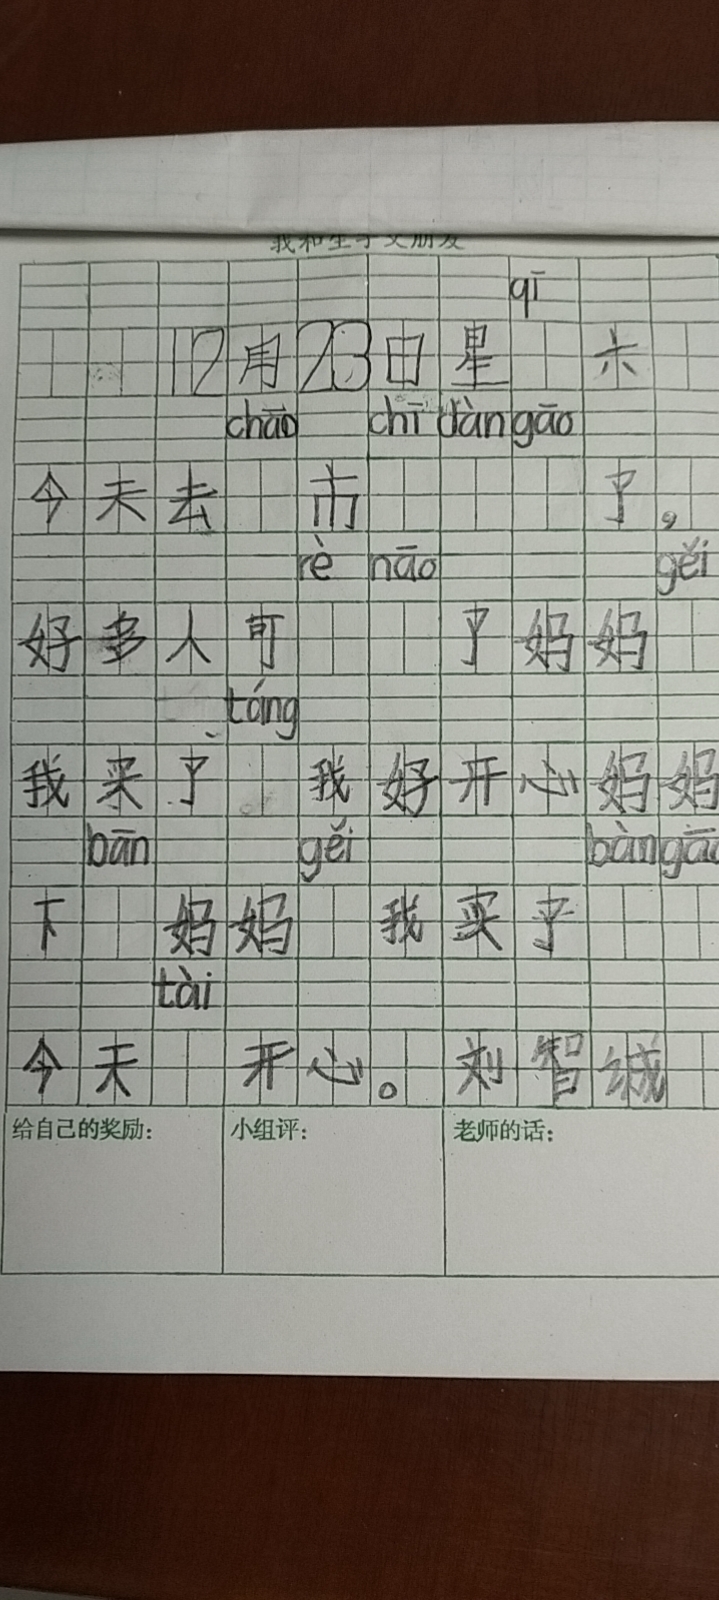 我和生字交朋友
qī
12月23日星 六
chāo chī dàn gāo
今天去 市 了,
rè nāo gěi
好多人可 了妈妈
táng
我买了 我好开心妈妈
bān gěi bàn gāo
下 妈妈 我买了
tài
今天 开心。刘智诚
给自己的奖励:
小组评:
老师的话: